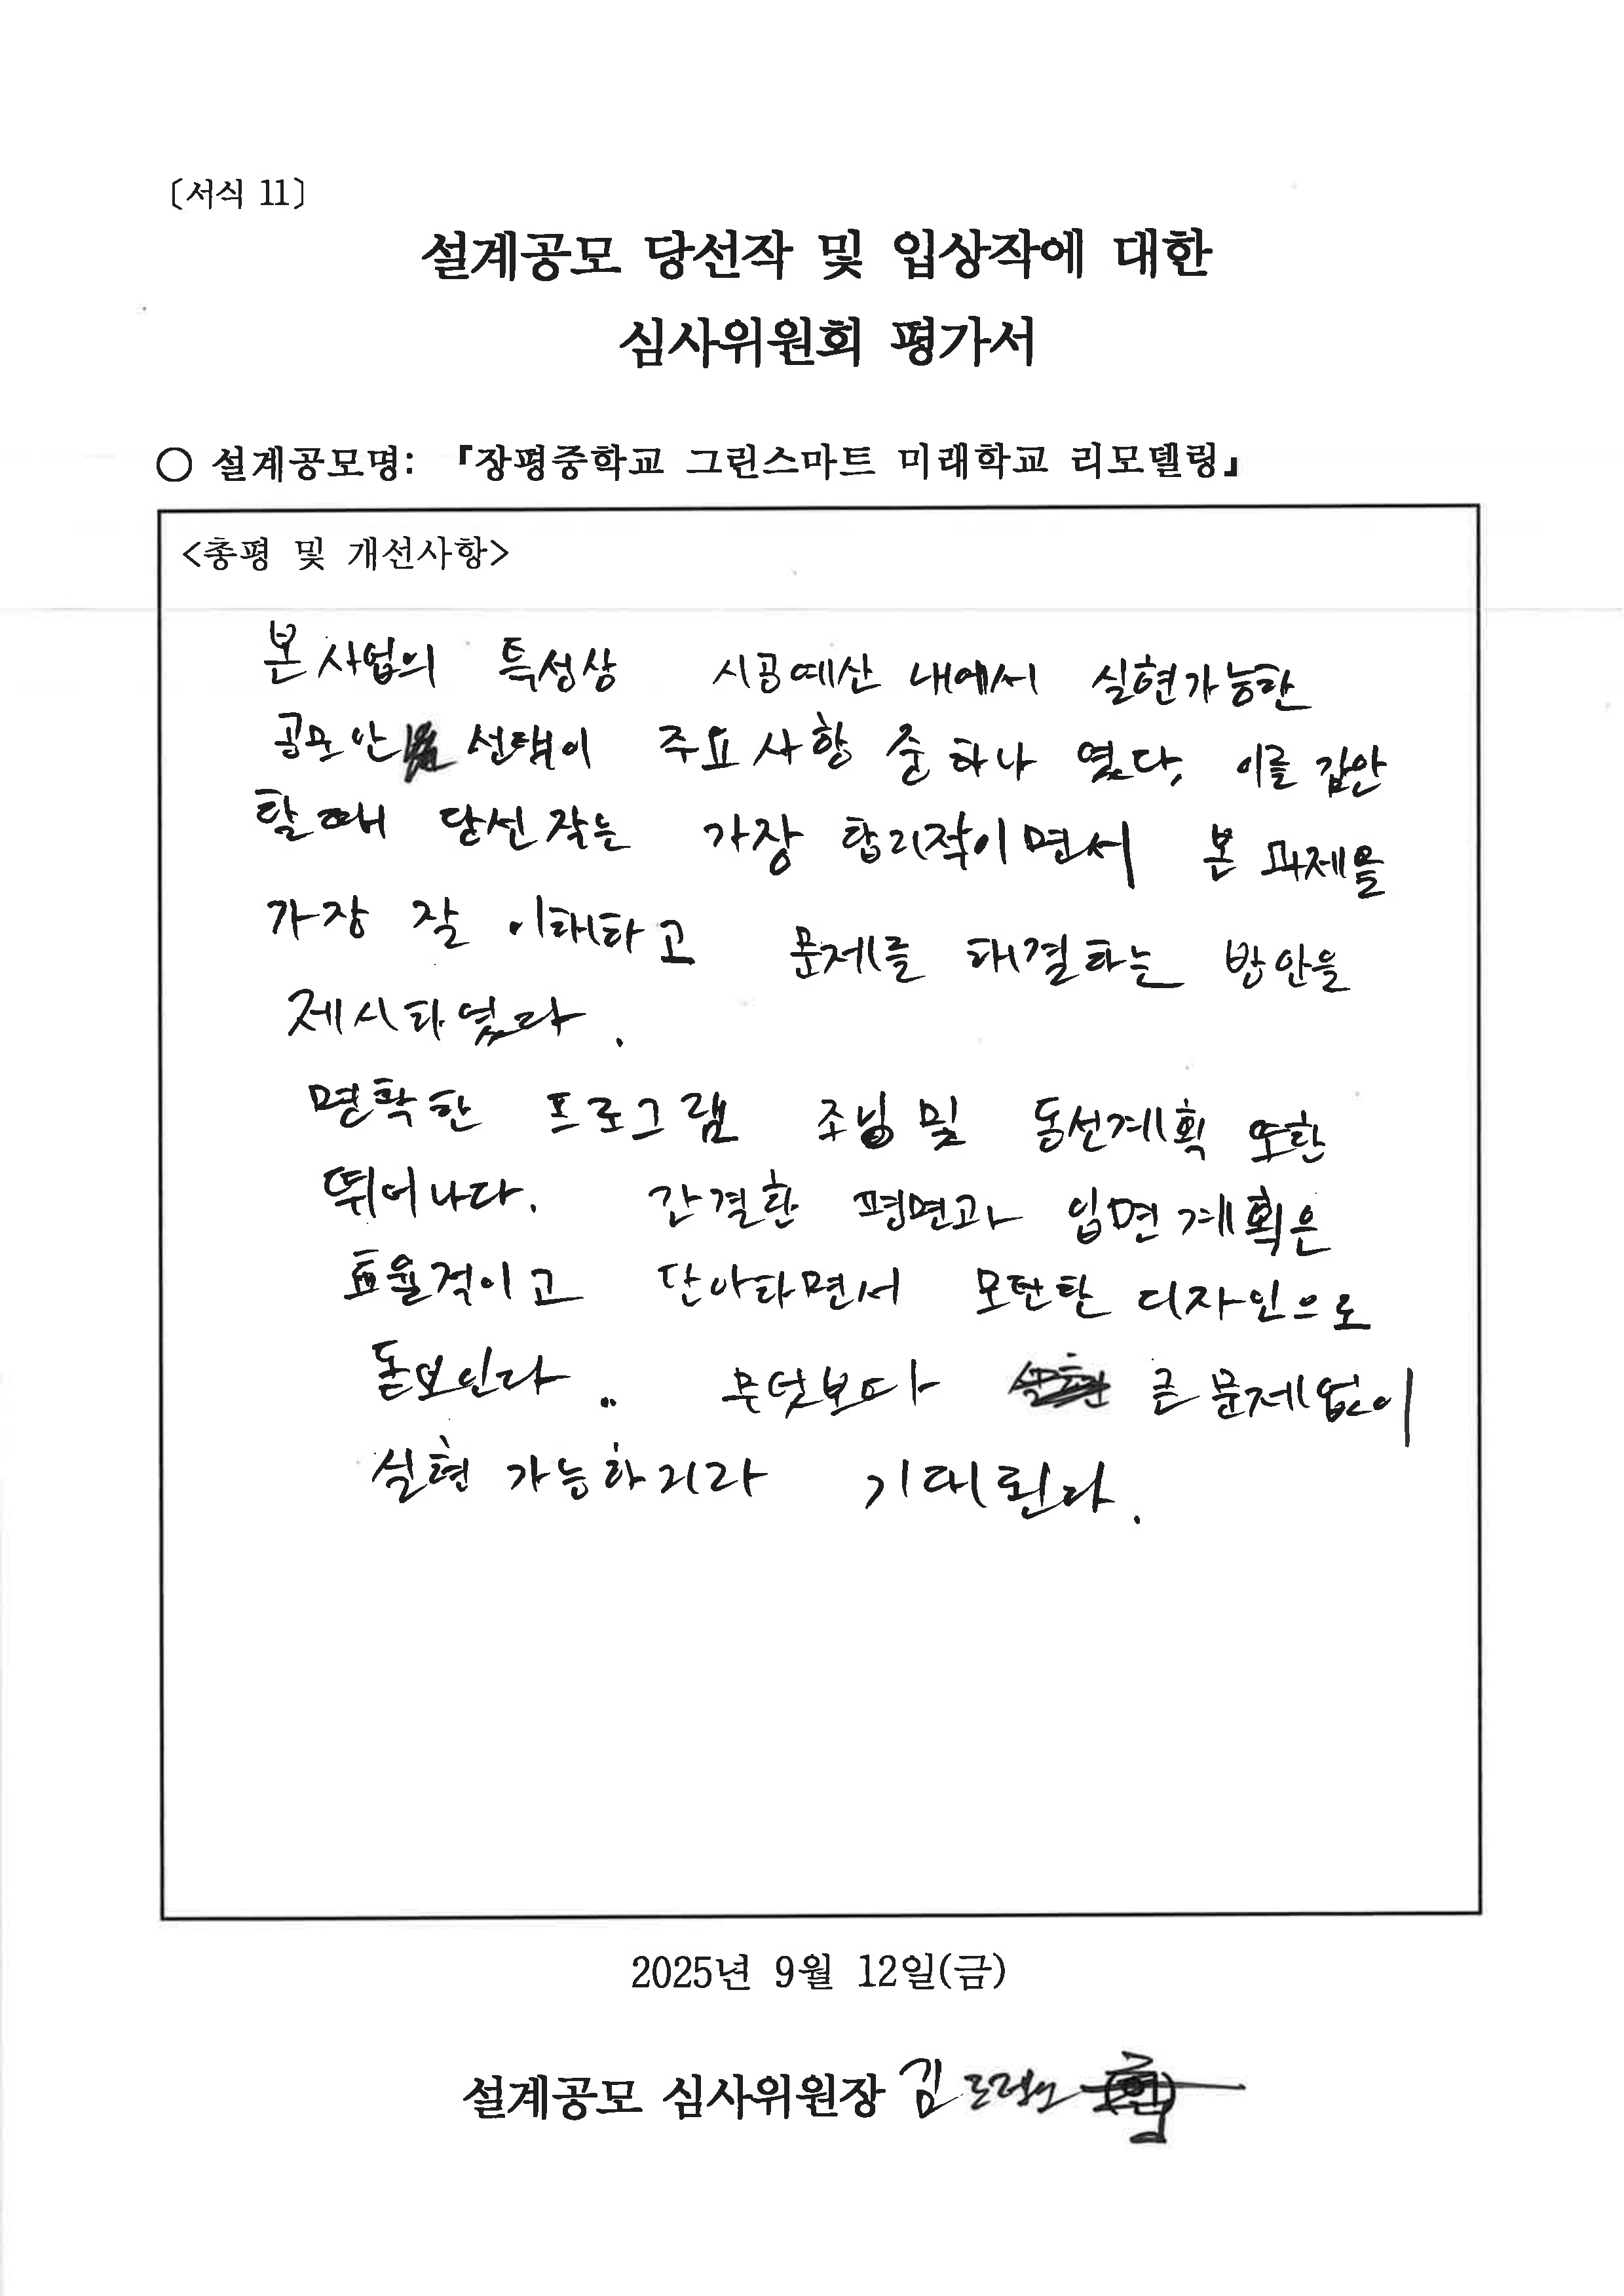 〔서식 11〕
설계공모 당선작 및 입상작에 대한
심사위원회 평가서
○ 설계공모명: 『장평중학교 그린스마트 미래학교 리모델링』
<총평 및 개선사항>
본 사업의 특성상 시공예산 내에서 실현가능한
공모안 선택이 주요사항 중 하나 였다, 이를 감안
할때 당선작는 가장 합리적이면서 본 과제을
가장 잘 이해하고 문제를 해결하는 방안을
제시하였다.
명확한 프로그램 조닝 및 동선계획 또한
뛰어나다. 간결한 평면과 입면계획은
효율적이고 단아하면서 모던한 디자인으로
돋보인다.. 무엇보다 큰 문제없이
실현 가능하리라 기대된다.
2025년 9월 12일(금)
설계공모 심사위원장 김